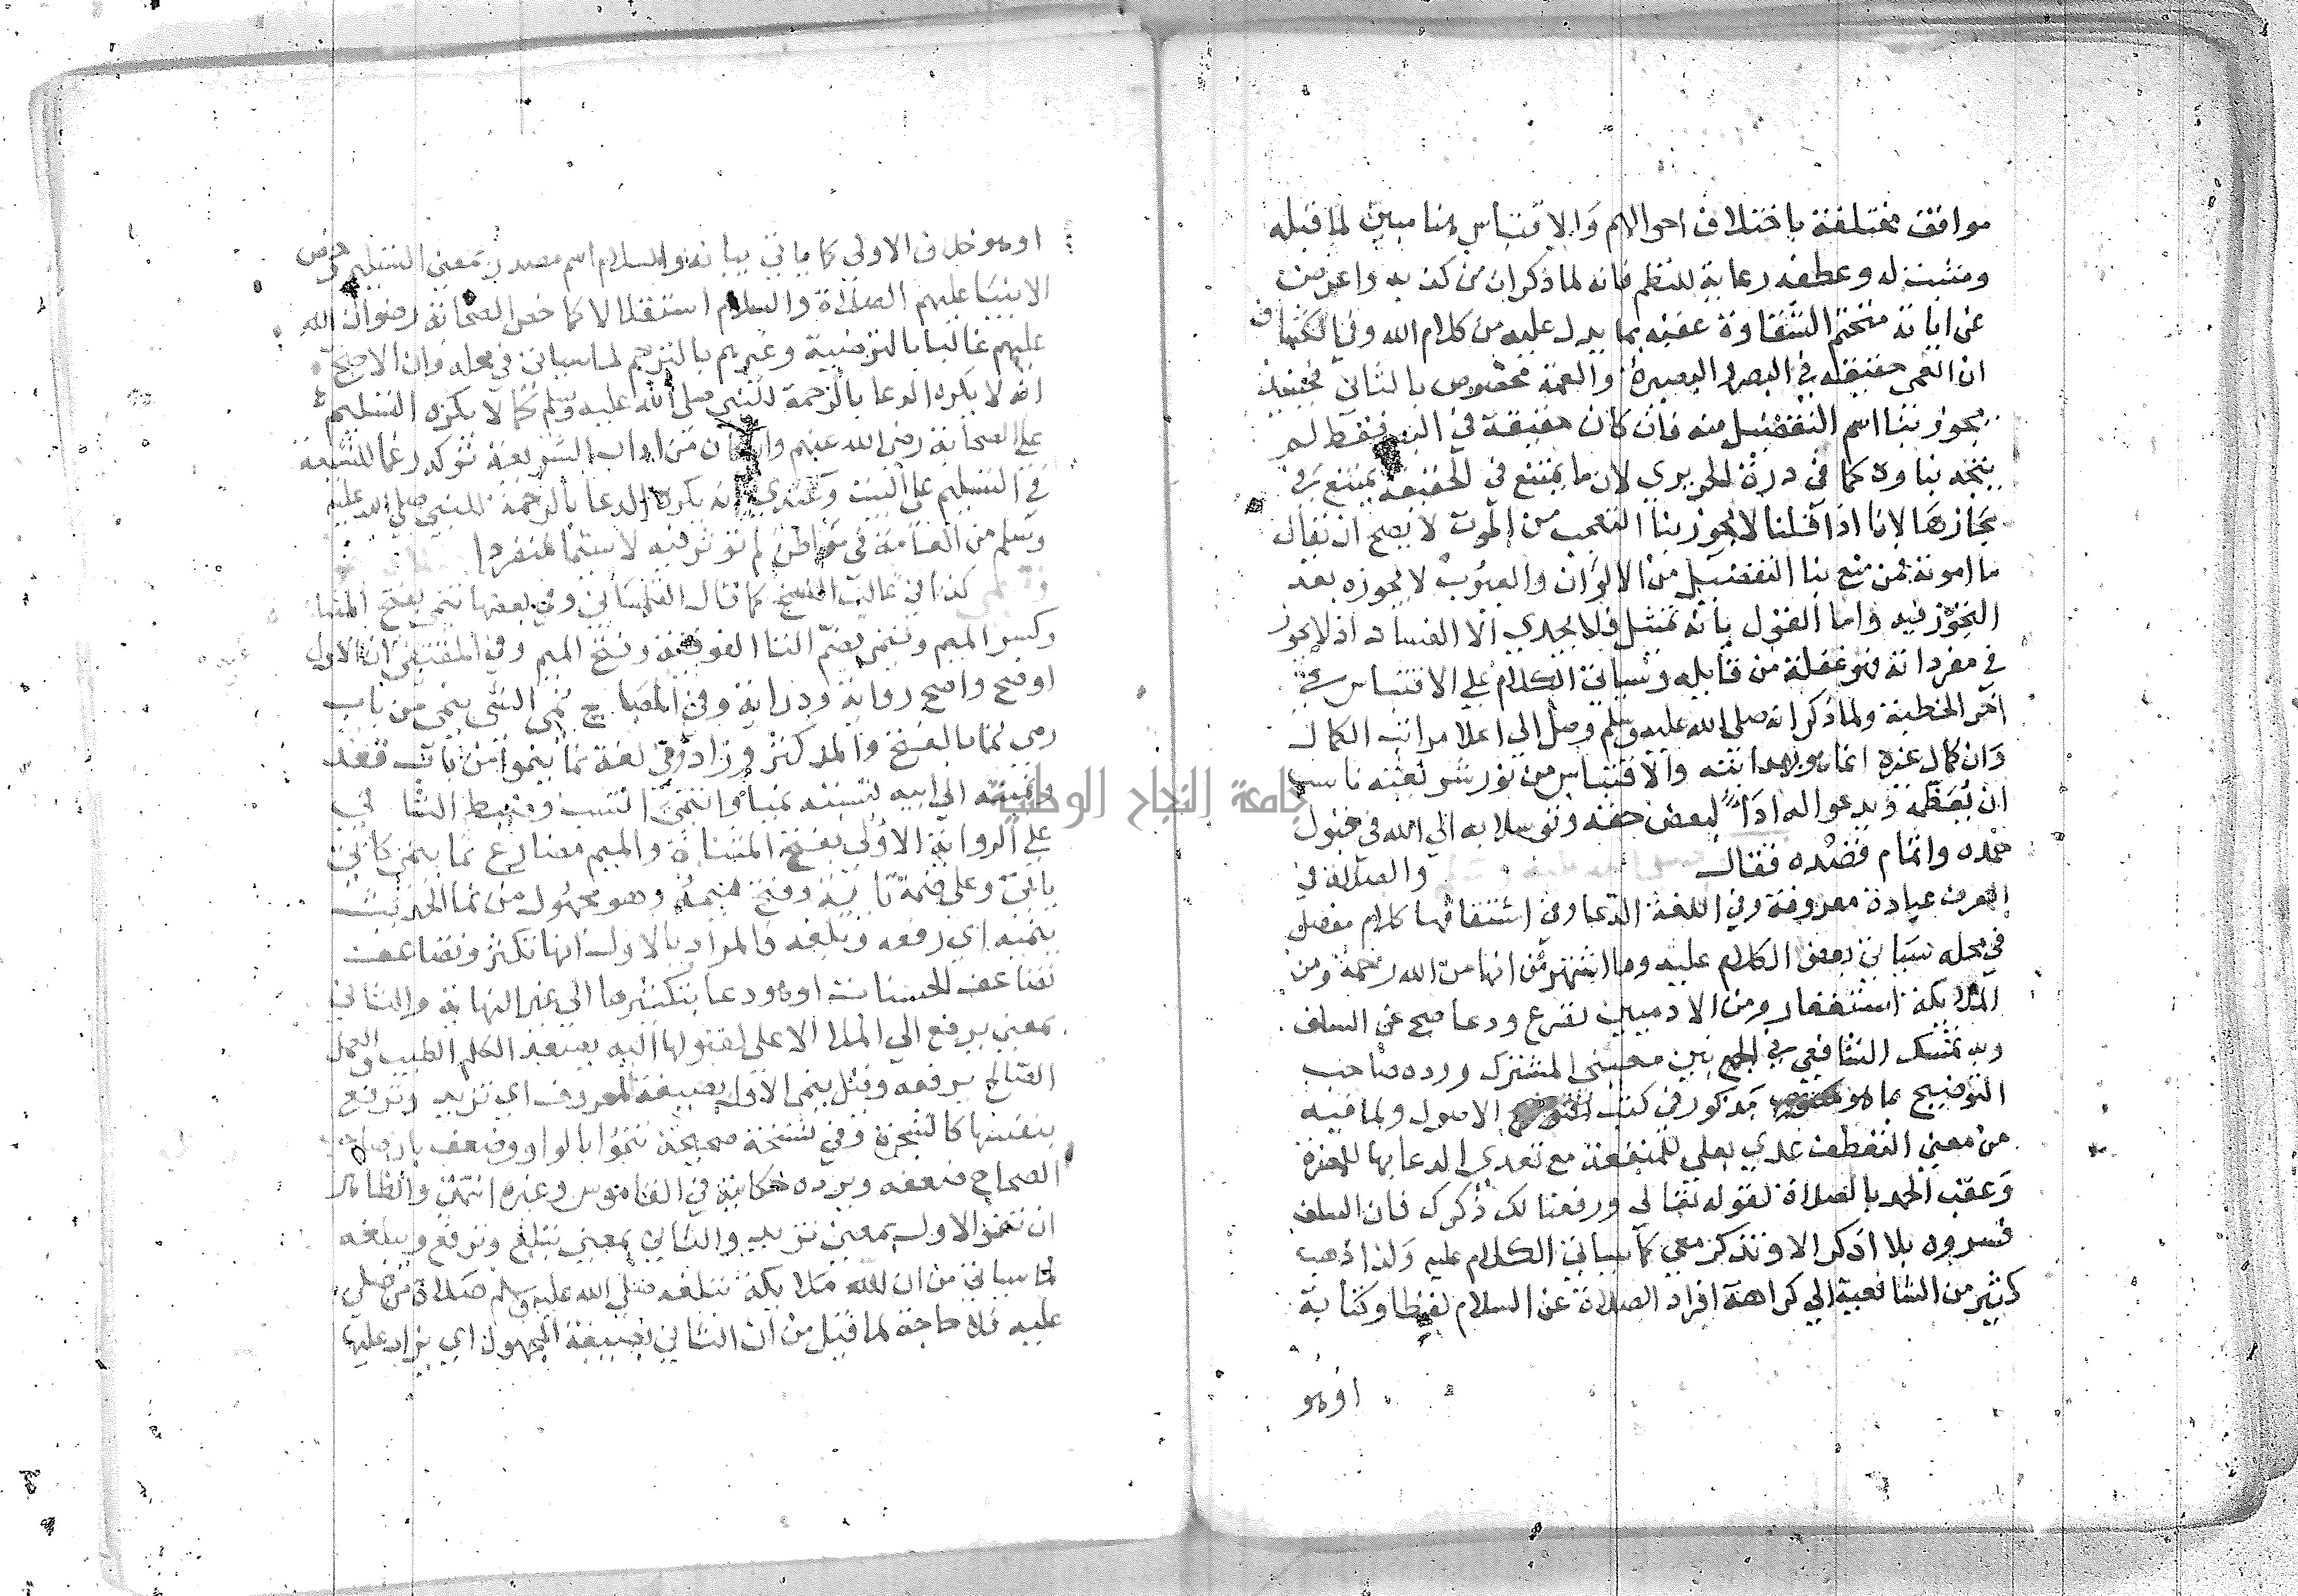 مواقف مختلفة باختلاف احوالهم والاقتباس هنا مبين لما قبله
ومثبت له وعطفه رعاية للنظم فانه لما ذكر ان من كذب به واعرض
عن اياته متحتم الشقاوة عقبه بما يدل عليه من كلام الله وفي الكشاف
ان العمى حقيقة في البصر و البصيرة والعمه مخصوص بالثاني فحينئذ
يجوز بنا اسم التفضيل منه فان كان حقيقة في البصر فقط لم
يتجه بناوه كما في درة الحريري لان ما يمتنع في الحقيقة يمتنع في
مجازها لانا اذا قلنا لا يجوز بنا التعجب من الموت لا يصح ان نقال
ما اموته فمن منع بنا التفضيل من الالوان والعيوب لا يجوزه بعد
التجوز فيه واما القول بانه تمثيل فلا يجدي الا الفساد اذ لا يجوز
في مفرداته فهو غفلة من قايله وسياتي الكلام على الاقتباس في
آخر الخطبة ولما ذكر انه صلى الله عليه وسلم وصل الي اعلا مراتب الكمال
وان كمال غيره انما هو بهدايته والاقتباس من نور شريعته ناسب
ان يعظمه ويدعو اله اداً لبعض حقه وتوسلا به الي الله في قبول
حمده واتمام قصده فقال والصلاة في
العرف عبادة معروفة وفي اللغة الدعا وفي اشتقاقها كلام مفصل
في محله سياتي بعض الكلام عليه وما اشتهر من انها من الله رحمة ومن
الملايكة استغفار ومن الادميين تضرع ودعا صح عن السلف
وبه تمسك الشافعي في الجمع بين معنيي المشترك ورده صاحب
التوضيح بما هو مذكور في كتب الاصول ولما فيه
من معني التعطف عدي بعلي للمنفعة مع تعدي الدعا بها للمضرة
وعقب الحمد بالصلاة لقوله تعالي ورفعنا لك ذكرك فان السلف
فسروه بلا اذكر الا وتذكر معي كما سياتي الكلام عليه ولذا ذهب
كثير من الشافعية الي كراهة افراد الصلاة عن السلام لفظا وكتابة
اوهو
اوهو خلاف الاولي كما ياتي بيانه والسلام اسم مصدر بمعني التسليم وخص
الانبيا عليهم الصلاة والسلام استقلالا كما خص الصحابة رضوان الله
عليهم غالبا بالترضية وغيرهم بالترحم لما سياتي في محله وان الاصح
انه لا يكره الدعا بالرحمة للنبي صلى الله عليه وسلم كما لا يكره التسليم
على الصحابة رضي الله عنهم وان كان من اداب الشريعة تؤكد رغما للشيعة
في التسليم على البيت وعندي انه يكره الدعا بالرحمة للنبي صلى الله عليه
وسلم من العامة في مواطن لم تؤثر فيه لا سيما منفردا
كذا في غالب النسخ كما قال التلمساني وفي بعضها تنمي بفتح المثناة
وكسر الميم وتنمى بضم التا الفوقية وفتح الميم وفي المقتفى ان الاول
اوضح واصح رواية ودراية وفي المصباح نمى الشي ينمي من باب
رمي نماء بالفتح والمد كثر و زاد وفي لغة نما ينموا من باب قعد
ونميته الي ابيه نسبته نميا وانتمى انتسب وضبط الشا في
على الرواية الاولى بفتح المثناة والميم مضارع نما ينمي كاتي
ياتي وعلى ضمة تا يه وفتح ميمه وهو مجهول من نما الحديث
ينميه اي رفعه وبلغه فالمراد بالاول انها تكثر وتضاعف
تضاعف الحسنات اوهو دعا بتكثيرها الي غير النهاية والثاني
بمعني يرفع الي الملا الاعلى لقبولها اليه يصعد الكلم الطيب والعمل
الصالح يرفعه وقيل ينمى الاول بصيغة المعروف اي تزيد وترتفع
بنفسها كالشجرة وفي نسخة صحيحة تنموا بالواو وضعف
الصحاح ضعفه ويرده حكايته في القاموس وغيره انتهى والظاهر
ان تنمو الاول بمعني تزيد والثاني بمعني تبلغ وترفع وبلغه
لما سياتي من ان لله ملايكة تبلغه صلى الله عليه وسلم صلاة من صلى
عليه فلا حاجة لما قيل من ان الثاني بصيغة المجهول اي يزاد عليها
جامعة النجاح الوطنية